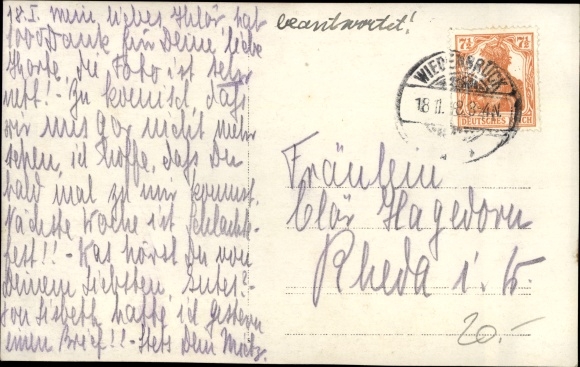 18. I. Mein liebes Klör, hab
1000 Dank für Deine liebe
Karte, die Foto ist sehr
nett! - Zu komisch, daß
wir uns gar nicht mehr
sehen, ich hoffe, daß Du
bald mal zu mir kommst.
Nächste Woche ist Schlacht-
fest!! - Was hörst Du von
Deinem Liebsten, Gutes? -
von Lisbeth hatte ich gestern
einen Brief!! - Stets Dein Moritz.
beantwortet!
7½ 7½
DEUTSCHES REICH
WIEDENBRÜCK
18.II.18.8-9N.
Fräulein
Clär Hagedorn
Rheda i. W.
20.-